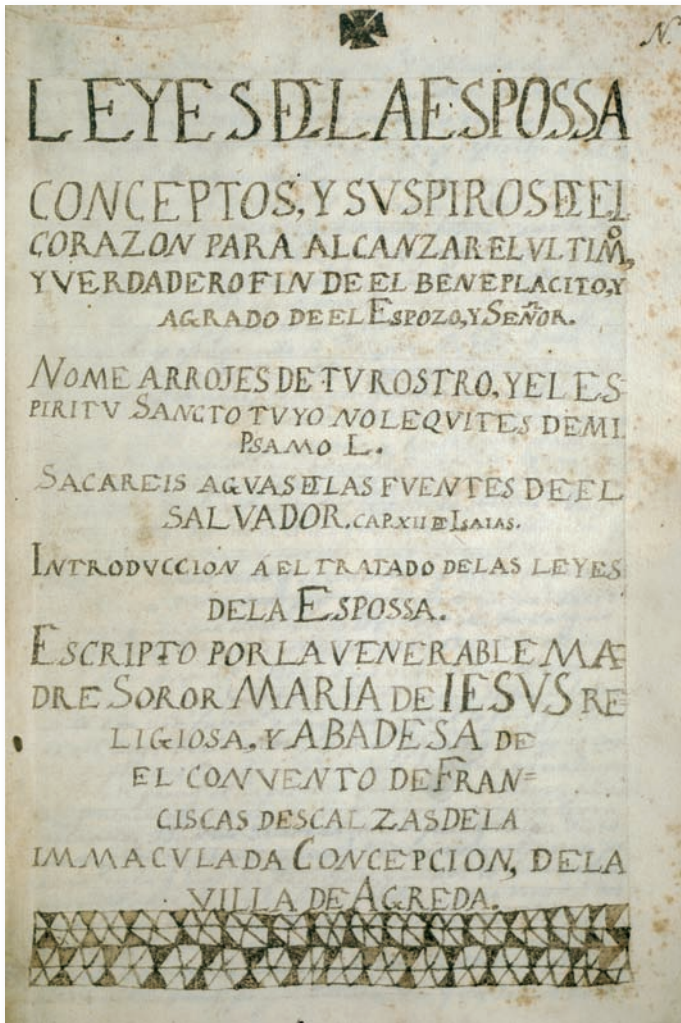 N.
LEYES DE LA ESPOSSA
CONCEPTOS, Y SVSPIROS DE EL
CORAZON PARA ALCANZAR EL VLTIMO,
Y VERDADERO FIN DE EL BENEPLACITO, Y
AGRADO DE EL ESPOZO, Y SEÑOR.
NO ME ARROJES DE TV ROSTRO, Y EL ES
PIRITV SANCTO TUYO NO LE QVITES DE MI
PSAMO L.
SACAREIS AGVAS DE LAS FVENTES DE EL
SALVADOR. CAP. XII DE ISAIAS.
INTRODVCCION Á EL TRATADO DE LAS LEYES
DE LA ESPOSSA.
ESCRIPTO POR LA VENERABLE MA
DRE SOROR MARIA DE IESVS RE
LIGIOSA, Y ABADESA DE
EL CONVENTO DE FRAN=
CISCAS DESCALZAS DE LA
IMMACVLADA CONCEPCION, DE LA
VILLA DE AGREDA.